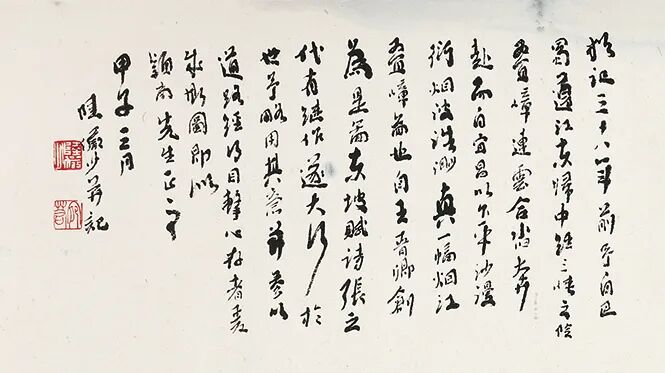 猶記三十八年前予自巴
蜀遵江東歸中經三峽之險
疊嶂連雲合沓大奔
赴而自宜昌以下平沙漫
衍烟波浩渺真一幅烟江
疊嶂圖也自王晋卿創
為是圖東坡賦詩張之
代有繼作遂大行於
世予略用其意並參以
道路經行目擊心存者爰
成斯圖即以
穎南先生正之
甲子三月
陸儼少並記